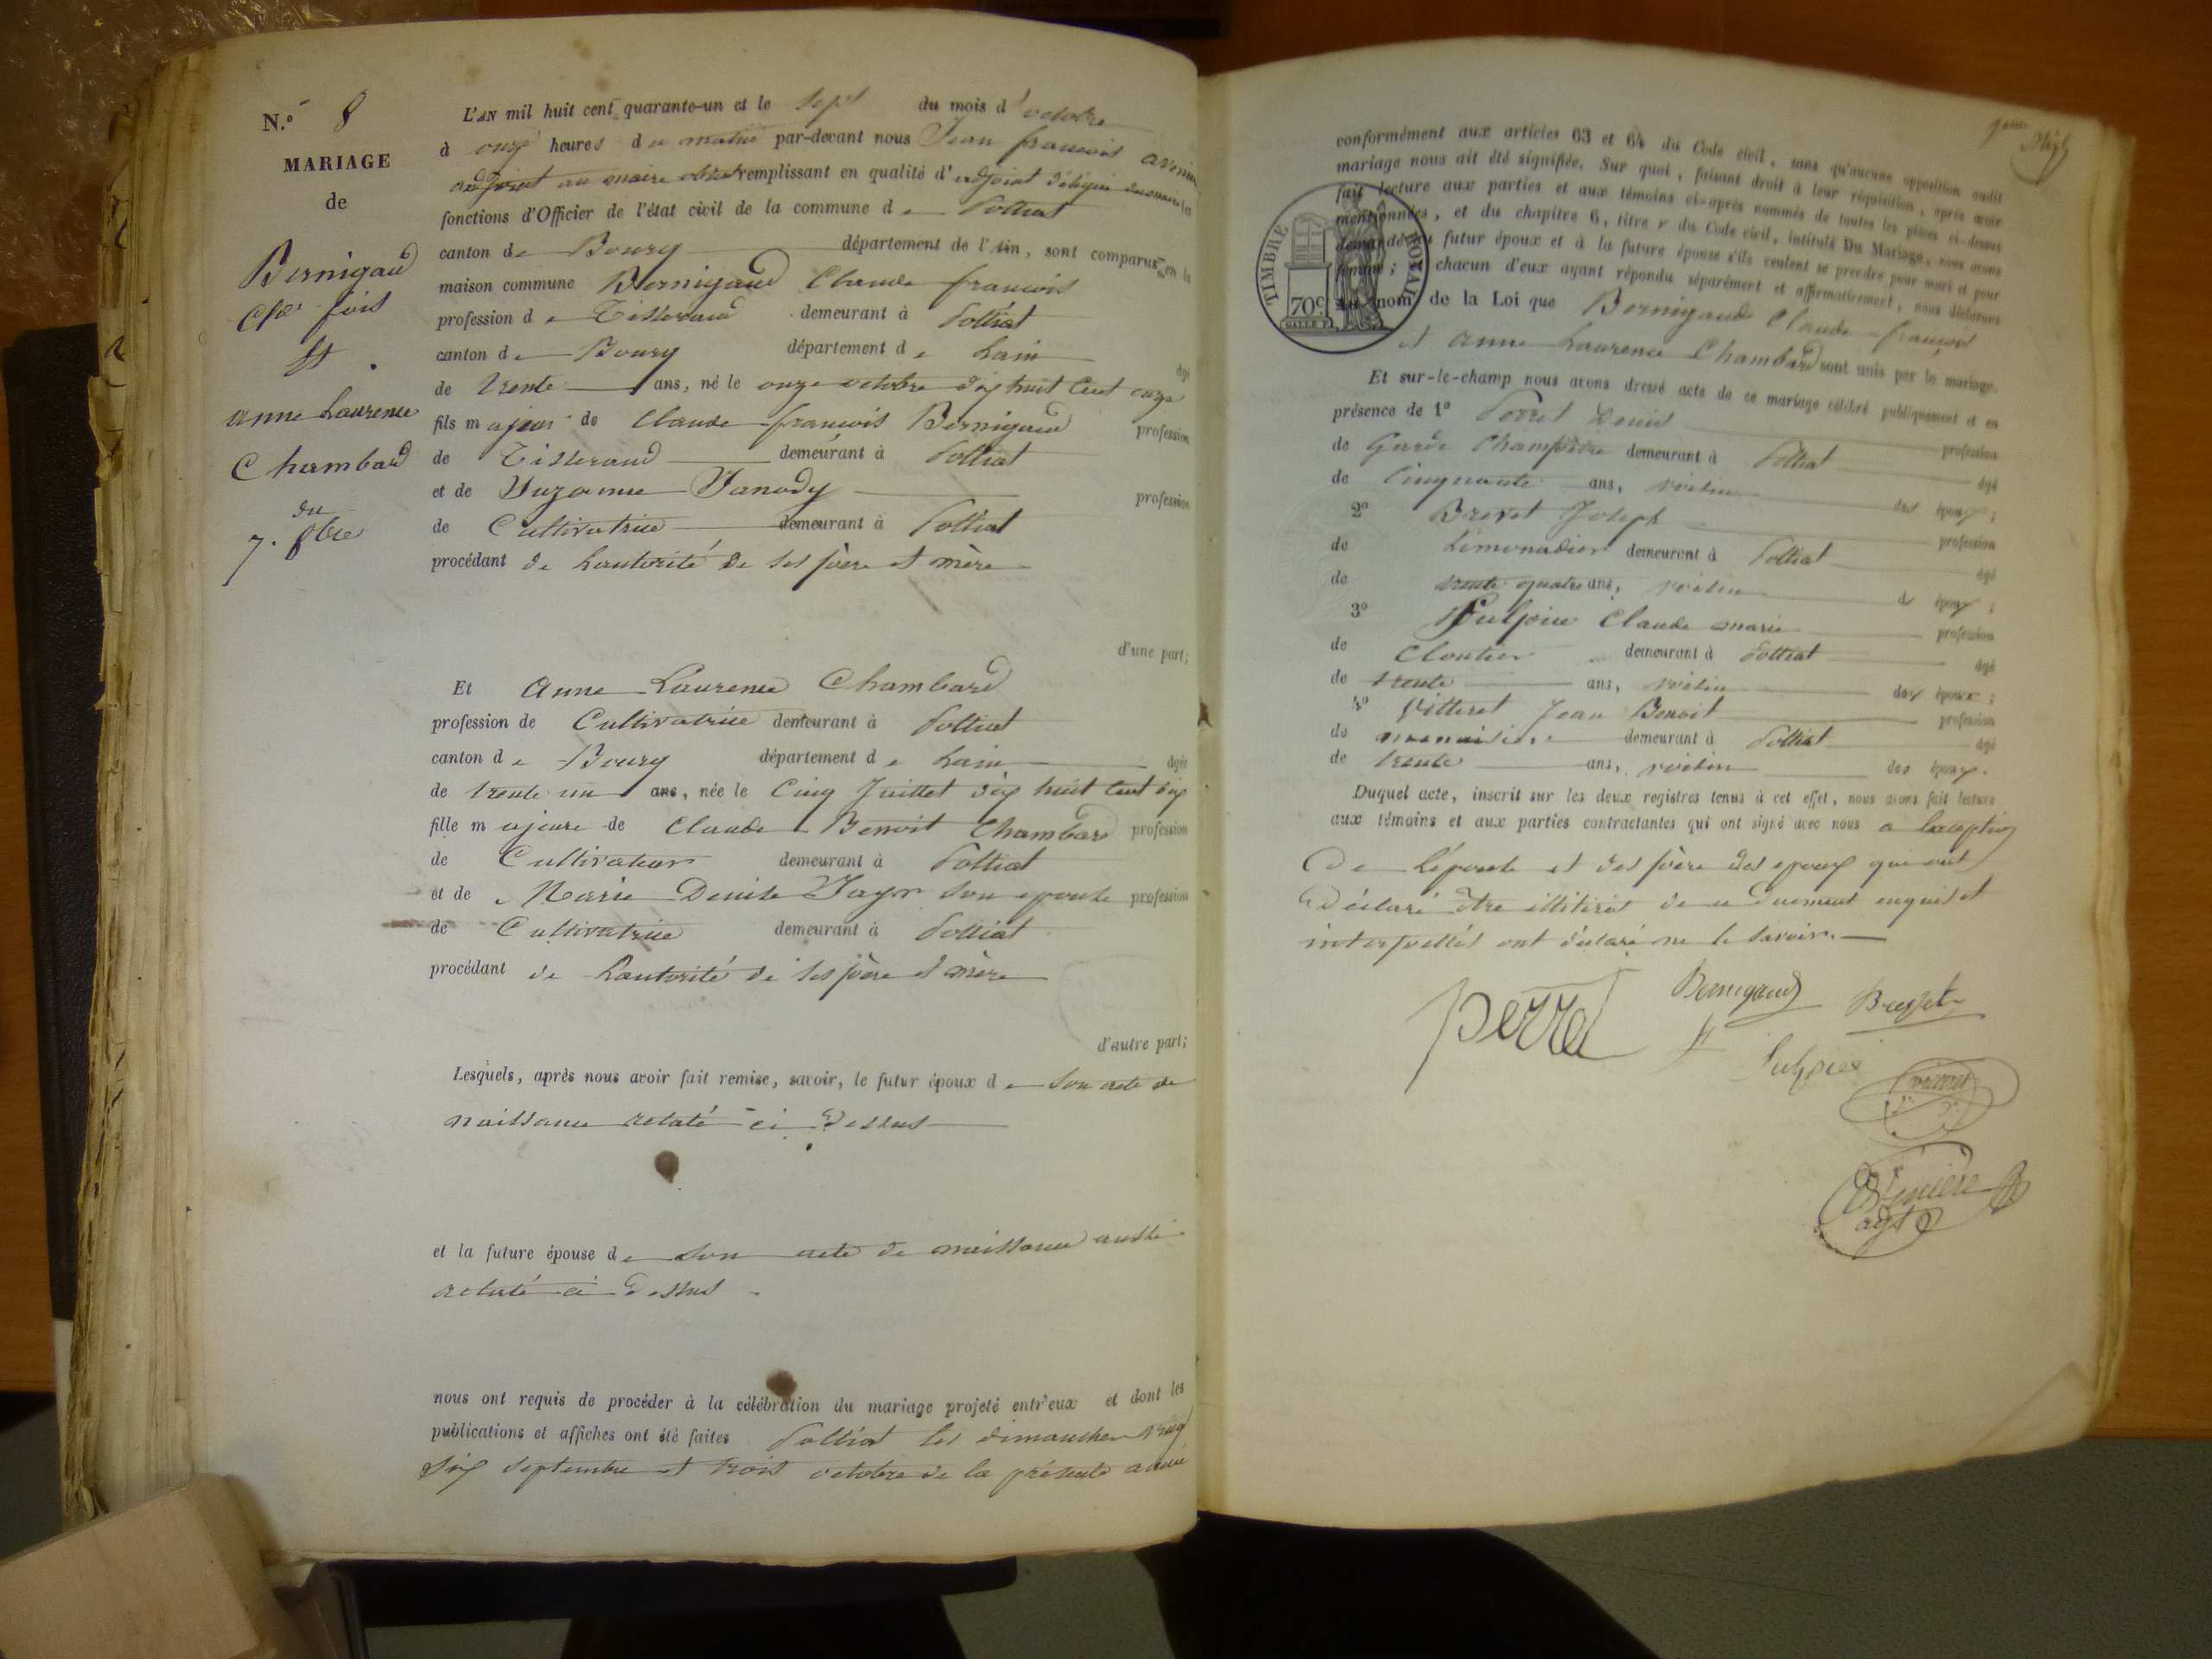 N.º 8
MARIAGE
de
Bernigaud
Cde fois
et
anne Laurence
Chambard
du
7. 8bre
L'AN mil huit cent quarante-un et le sept du mois d'octobre
à onze heures du matin par-devant nous Jean francois
adjoint au maire remplissant en qualité d'adjoint les
fonctions d'Officier de l'état civil de la commune de Polliat
canton de Bourg département de l'Ain, sont comparus en la
maison commune Bernigaud Claude francois
profession de Tisserand demeurant à Polliat
canton de Bourg département de Lain âgé
de trente ans, né le onze octobre dix huit Cent onze
fils majeur de Claude francois Bernigaud profession
de Tisserand demeurant à Polliat
et de Suzanne Vanody profession
de Cultivatrice demeurant à Polliat
procédant de Lautorité de ses père et mère
d'une part;
Et Anne Laurence Chambard
profession de Cultivatrice demeurant à Polliat
canton de Bourg département de Lain âgée
de trente un ans, née le Cinq Juillet dix huit Cent dix
fille majeure de Claude Benoit Chambard profession
de Cultivateur demeurant à Polliat
et de Marie Denise Jayr son epouse profession
de Cultivatrice demeurant à Polliat
procédant de Lautorité de ses père et mère
d'autre part;
Lesquels, après nous avoir fait remise, savoir, le futur époux de son acte de
naissance relaté ci dessus
et la future épouse de son acte de naissance aussi
relaté ci dessus
nous ont requis de procéder à la célébration du mariage projeté entr'eux et dont les
publications et affiches ont été faites Polliat les dimanches vingt
six septembre et trois octobre de la présente année
conformément aux articles 63 et 64 du Code civil, sans qu'aucune opposition audit
mariage nous ait été signifiée. Sur quoi, faisant droit à leur réquisition, après avoir
fait lecture aux parties et aux témoins ci-après nommés de toutes les pièces ci-dessus
mentionnées, et du chapitre 6, titre v du Code civil, intitulé Du Mariage, nous avons
demandé au futur époux et à la future épouse s'ils veulent se prendre pour mari et pour
femme; chacun d'eux ayant répondu séparément et affirmativement, nous déclarons
au nom de la Loi que Bernigaud Claude françois
et anne Laurence Chambard sont unis par le mariage.
TIMBRE ROYAL
70c.
Et sur-le-champ nous avons dressé acte de ce mariage célébré publiquement et en
présence de 1º Perret Denis profession
de Garde Champêtre demeurant à Polliat âgé
de Cinquante ans, voisin des époux;
2º Brevet Joseph profession
de Limonadier demeurant à Polliat âgé
de trente quatre ans, voisin des époux;
3º Pulsoie Claude marie profession
de Cloutier demeurant à Polliat âgé
de trente ans, voisin des époux;
4º Vitteret Jean Benoit profession
de menuisier demeurant à Polliat âgé
de trente ans, voisin des époux.
Duquel acte, inscrit sur les deux registres tenus à cet effet, nous avons fait lecture
aux témoins et aux parties contractantes qui ont signé avec nous a lexception
De lépouse et des père des epoux qui ont
déclaré être illitérés de ce duement enquis et
interpellés ont déclaré ne le savoir.
perret Bernigaud